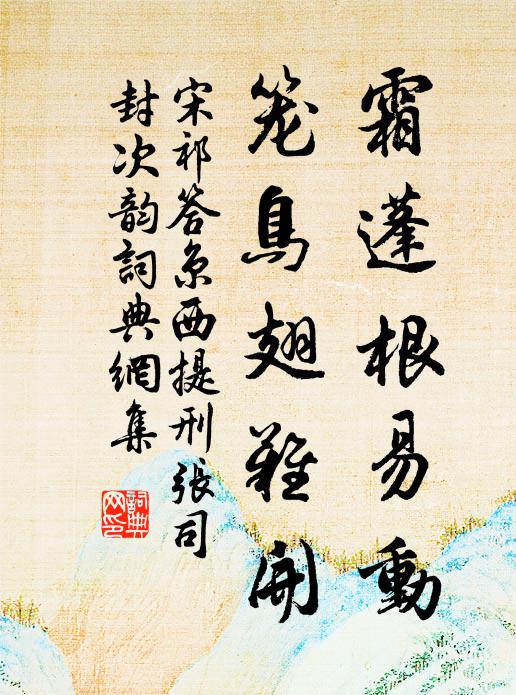 霜蓬根易動
笼鳥翅難開
宋祁答京西提刑張司
封次韵詞典網集
詞典
网印